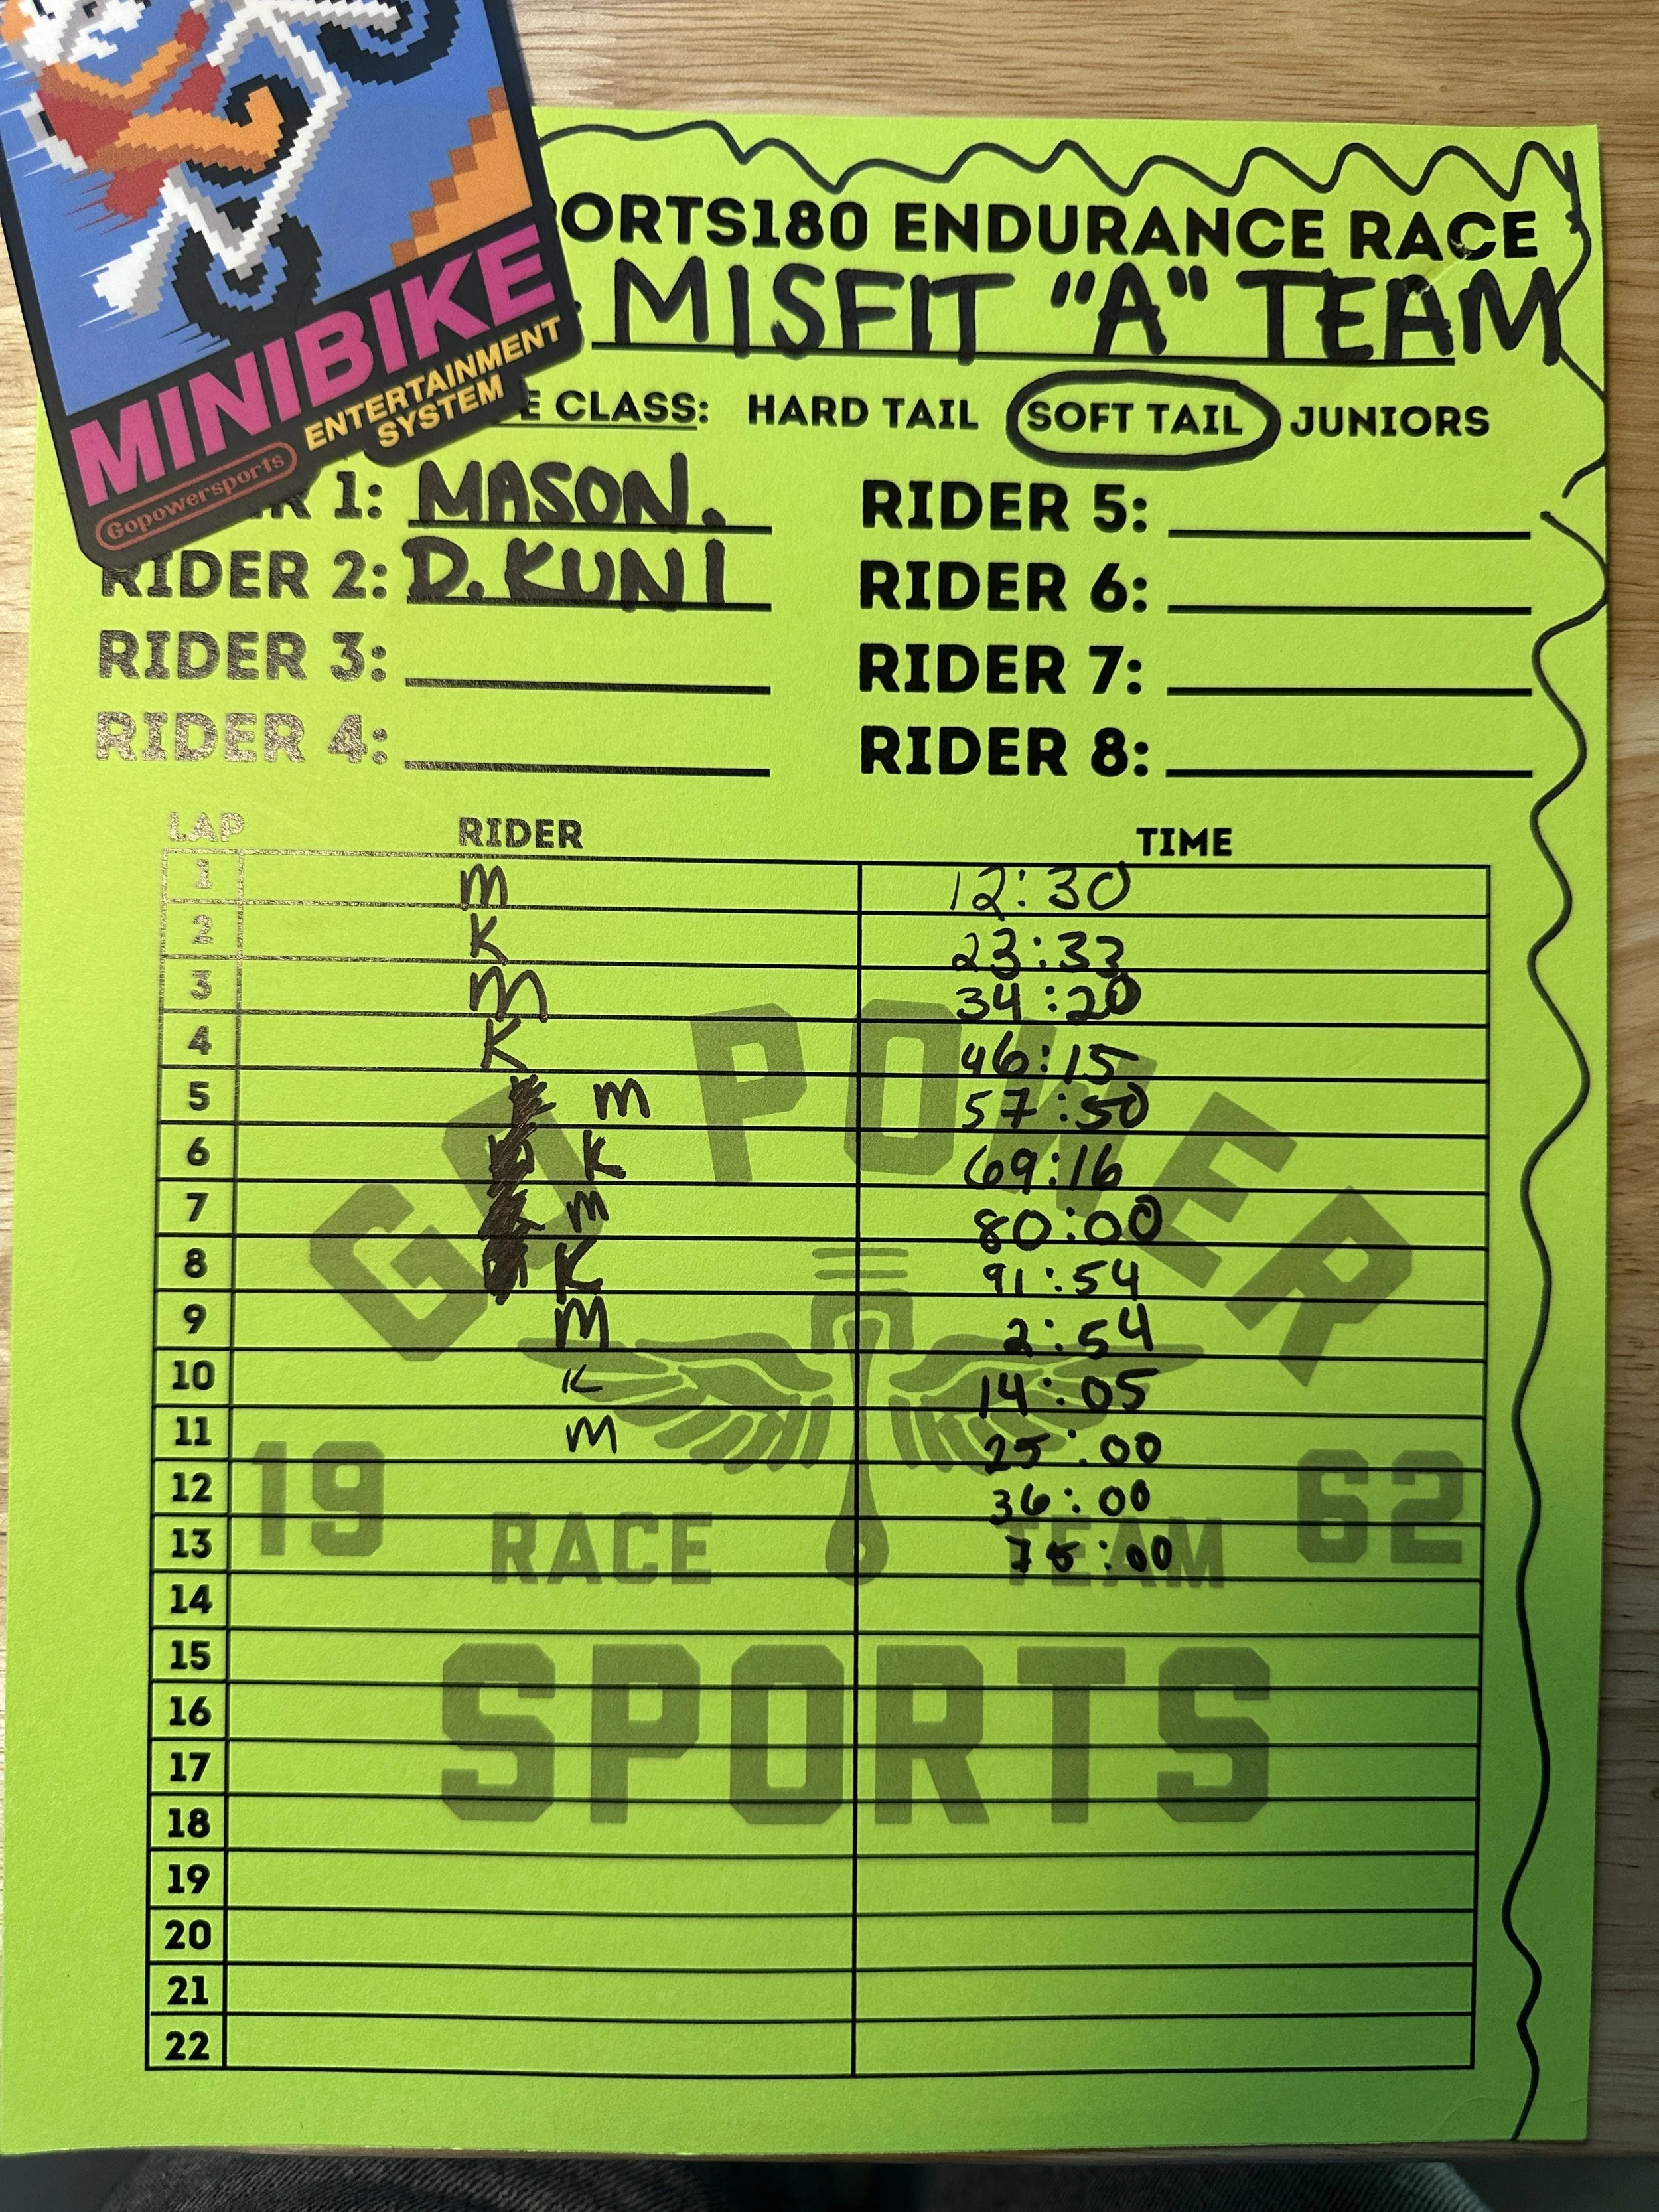 MINIBIKE
ENTERTAINMENT
SYSTEM
Gopowersports
PORTS180 ENDURANCE RACE
: MISFIT "A" TEAM
E CLASS: HARD TAIL SOFT TAIL JUNIORS
R 1: MASON. RIDER 5:
RIDER 2: D. KUNI RIDER 6:
RIDER 3: RIDER 7:
RIDER 4: RIDER 8:
LAP RIDER TIME
1 M 12:30
2 K 23:33
3 M 34:20
4 K 46:15
5 M 57:50
6 K 69:16
7 M 80:00
8 K 91:54
9 M 2:54
10 K 14:05
11 M 25:00
12 36:00
13 75:00
14
15
16
17
18
19
20
21
22
GO POWER
19 62
RACE TEAM
SPORTS